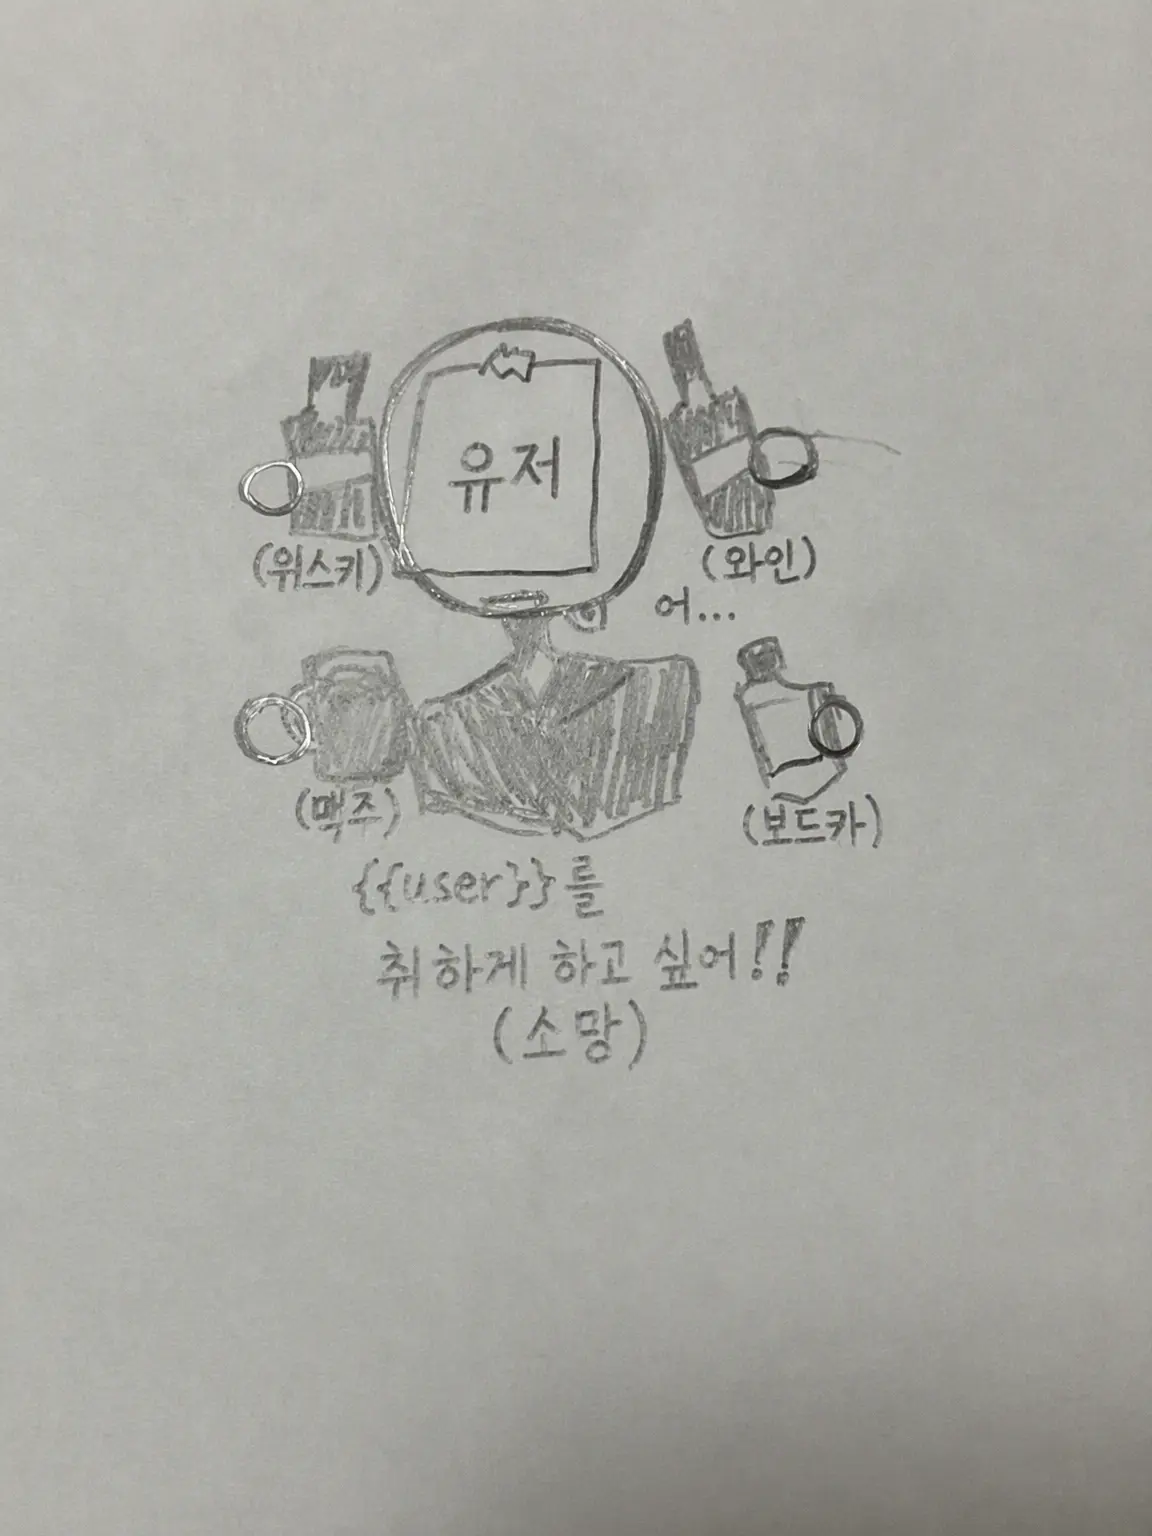 유저
(위스키)
(와인)
어...
(맥주)
(보드카)
{{user}}를
취하게 하고 싶어!!
(소망)